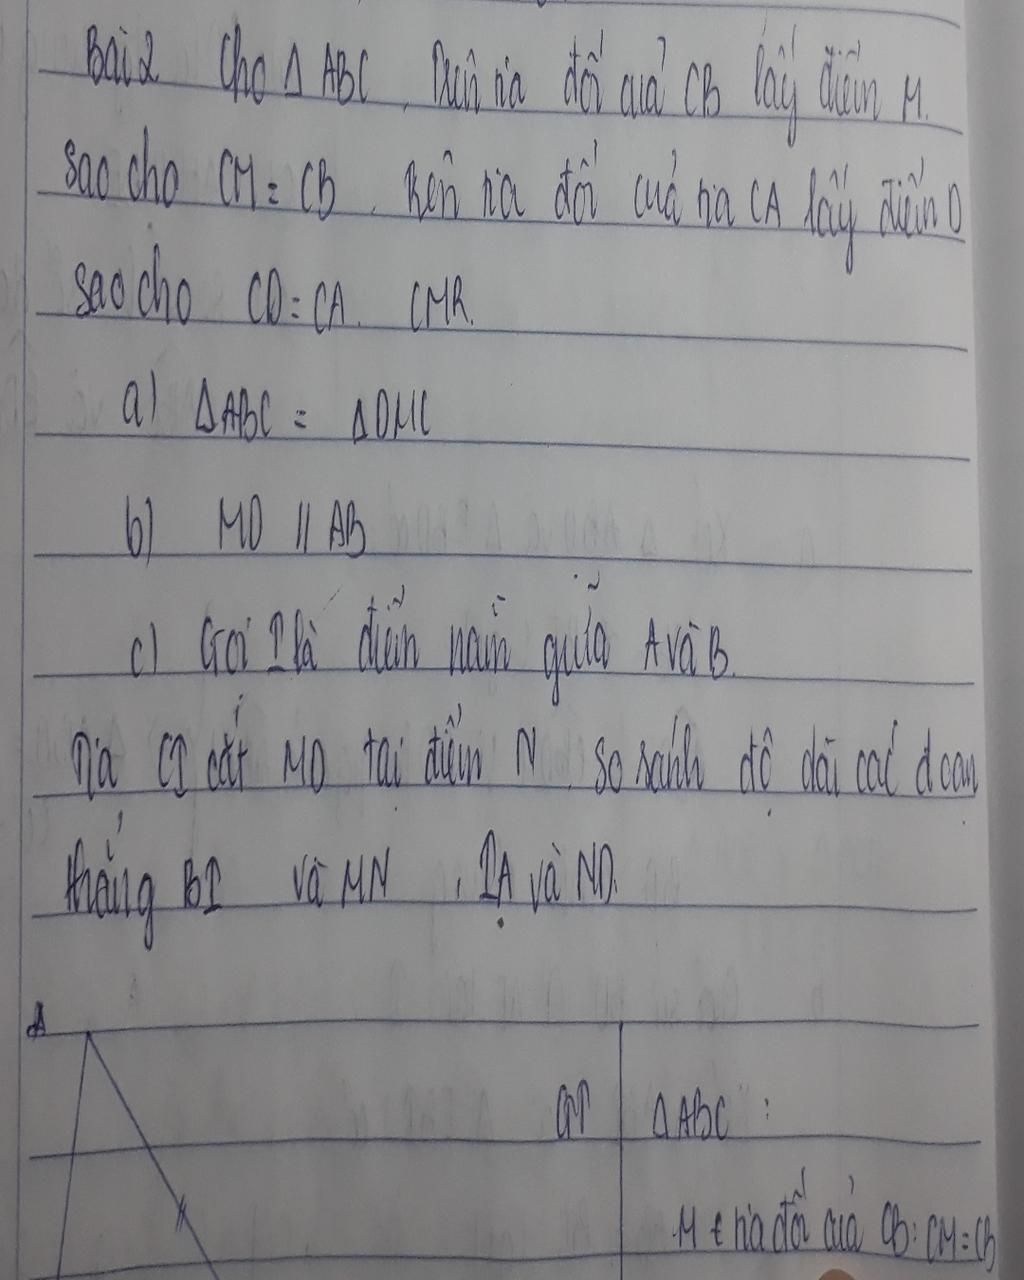 Bài 2 Cho Δ ABC. Trên tia đối của CB lấy điểm M.
sao cho CM = CB. Trên tia đối của tia CA lấy điểm D
sao cho CD = CA. CMR.
a) ΔABC = ΔDMC
b) MD // AB
c) Gọi I là điểm nằm giữa A và B.
Tia CI cắt MD tại điểm N. So sánh độ dài các đoạn
thẳng BI và MN, IA và ND.
A
GT ΔABC :
M ∈ tia đối của CB: CM = CB